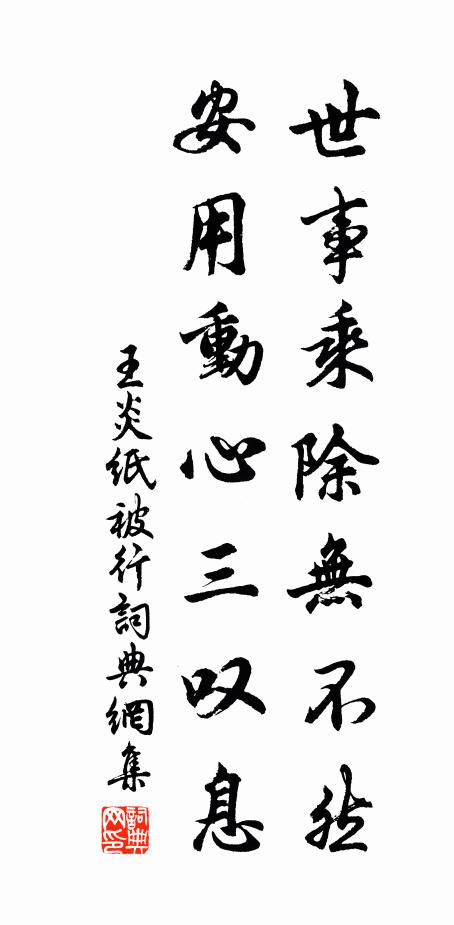 世事乘除無不然
安用動心三叹息
王炎纸被行詞典網集
詞典
网印